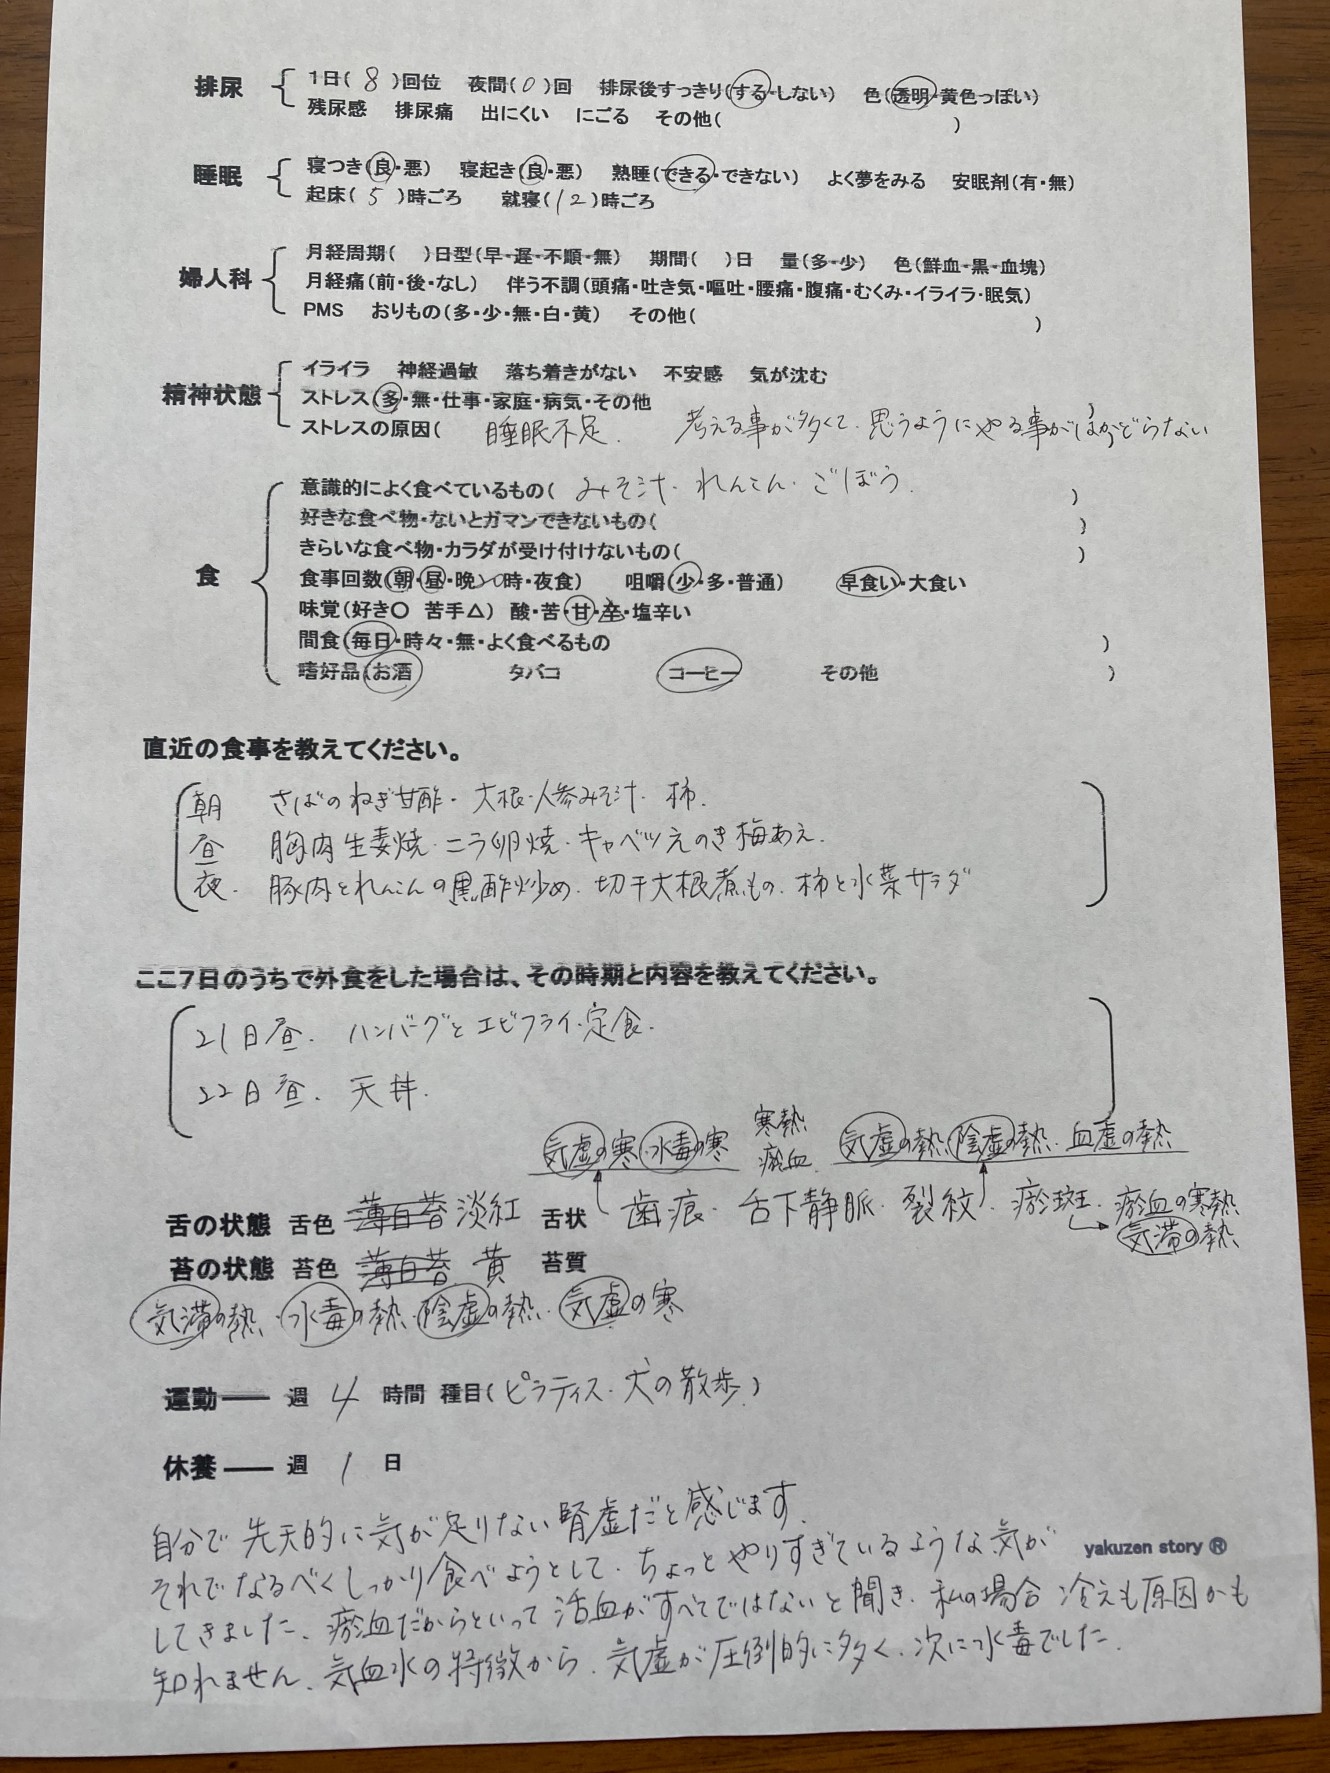 排尿 1日( 8 )回位 夜間( 0 )回 排尿後すっきり(する・しない) 色(透明・黄色っぽい)
残尿感 排尿痛 出にくい にごる その他( )
睡眠 寝つき(良・悪) 寝起き(良・悪) 熟睡(できる・できない) よく夢をみる 安眠剤(有・無)
起床( 5 )時ごろ 就寝( 12 )時ごろ
婦人科 月経周期( )日型(早・遅・不順・無) 期間( )日 量(多・少) 色(鮮血・黒・血塊)
月経痛(前・後・なし) 伴う不調(頭痛・吐き気・嘔吐・腰痛・腹痛・むくみ・イライラ・眠気)
PMS おりもの(多・少・無・白・黄) その他( )
精神状態 イライラ 神経過敏 落ち着きがない 不安感 気が沈む
ストレス(多・無・仕事・家庭・病気・その他
ストレスの原因( 睡眠不足. 考える事が多くて、思うようにやる事がはかどらない )
食 意識的によく食べているもの( みそ汁・れんこん・ごぼう. )
好きな食べ物・ないとガマンできないもの( )
きらいな食べ物・カラダが受け付けないもの( )
食事回数(朝・昼・晩・10時・夜食) 咀嚼(少・多・普通) 早食い・大食い
味覚(好き○ 苦手△) 酸・苦・甘・辛・塩辛い
間食(毎日・時々・無・よく食べるもの )
嗜好品(お酒 タバコ コーヒー その他 )
直近の食事を教えてください。
朝 さばのねぎ甘酢・大根・人参みそ汁・柿.
昼 胸肉生姜焼・ニラ卵焼・キャベツえのき梅あえ.
夜. 豚肉とれんこんの黒酢炒め、切干大根煮もの、柿と水菜サラダ
ここ7日のうちで外食をした場合は、その時期と内容を教えてください。
21日昼. ハンバーグとエビフライ定食.
22日昼. 天丼.
気虚の寒 水毒の寒 寒熱 瘀血 気虚の熱 陰虚の熱・血虚の熱
舌の状態 舌色 薄白苔 淡紅 舌状 歯痕・舌下静脈・裂紋・瘀斑・瘀血の寒熱
気滞の熱
苔の状態 苔色 薄白苔 黄 苔質
気滞の熱・水毒の熱・陰虚の熱・気虚の寒
運動 ― 週 4 時間 種目( ピラティス・犬の散歩 )
休養 ― 週 1 日
自分で先天的に気が足りない腎虚だと感じます.
それでなるべくしっかり食べようとして、ちょっとやりすぎているような気が
yakuzen story ®
してきました、瘀血だからといって活血がすべてではないと聞き、私の場合冷えも原因かも
知れません、気血水の特徴から、気虚が圧倒的に多く、次に水毒でした.